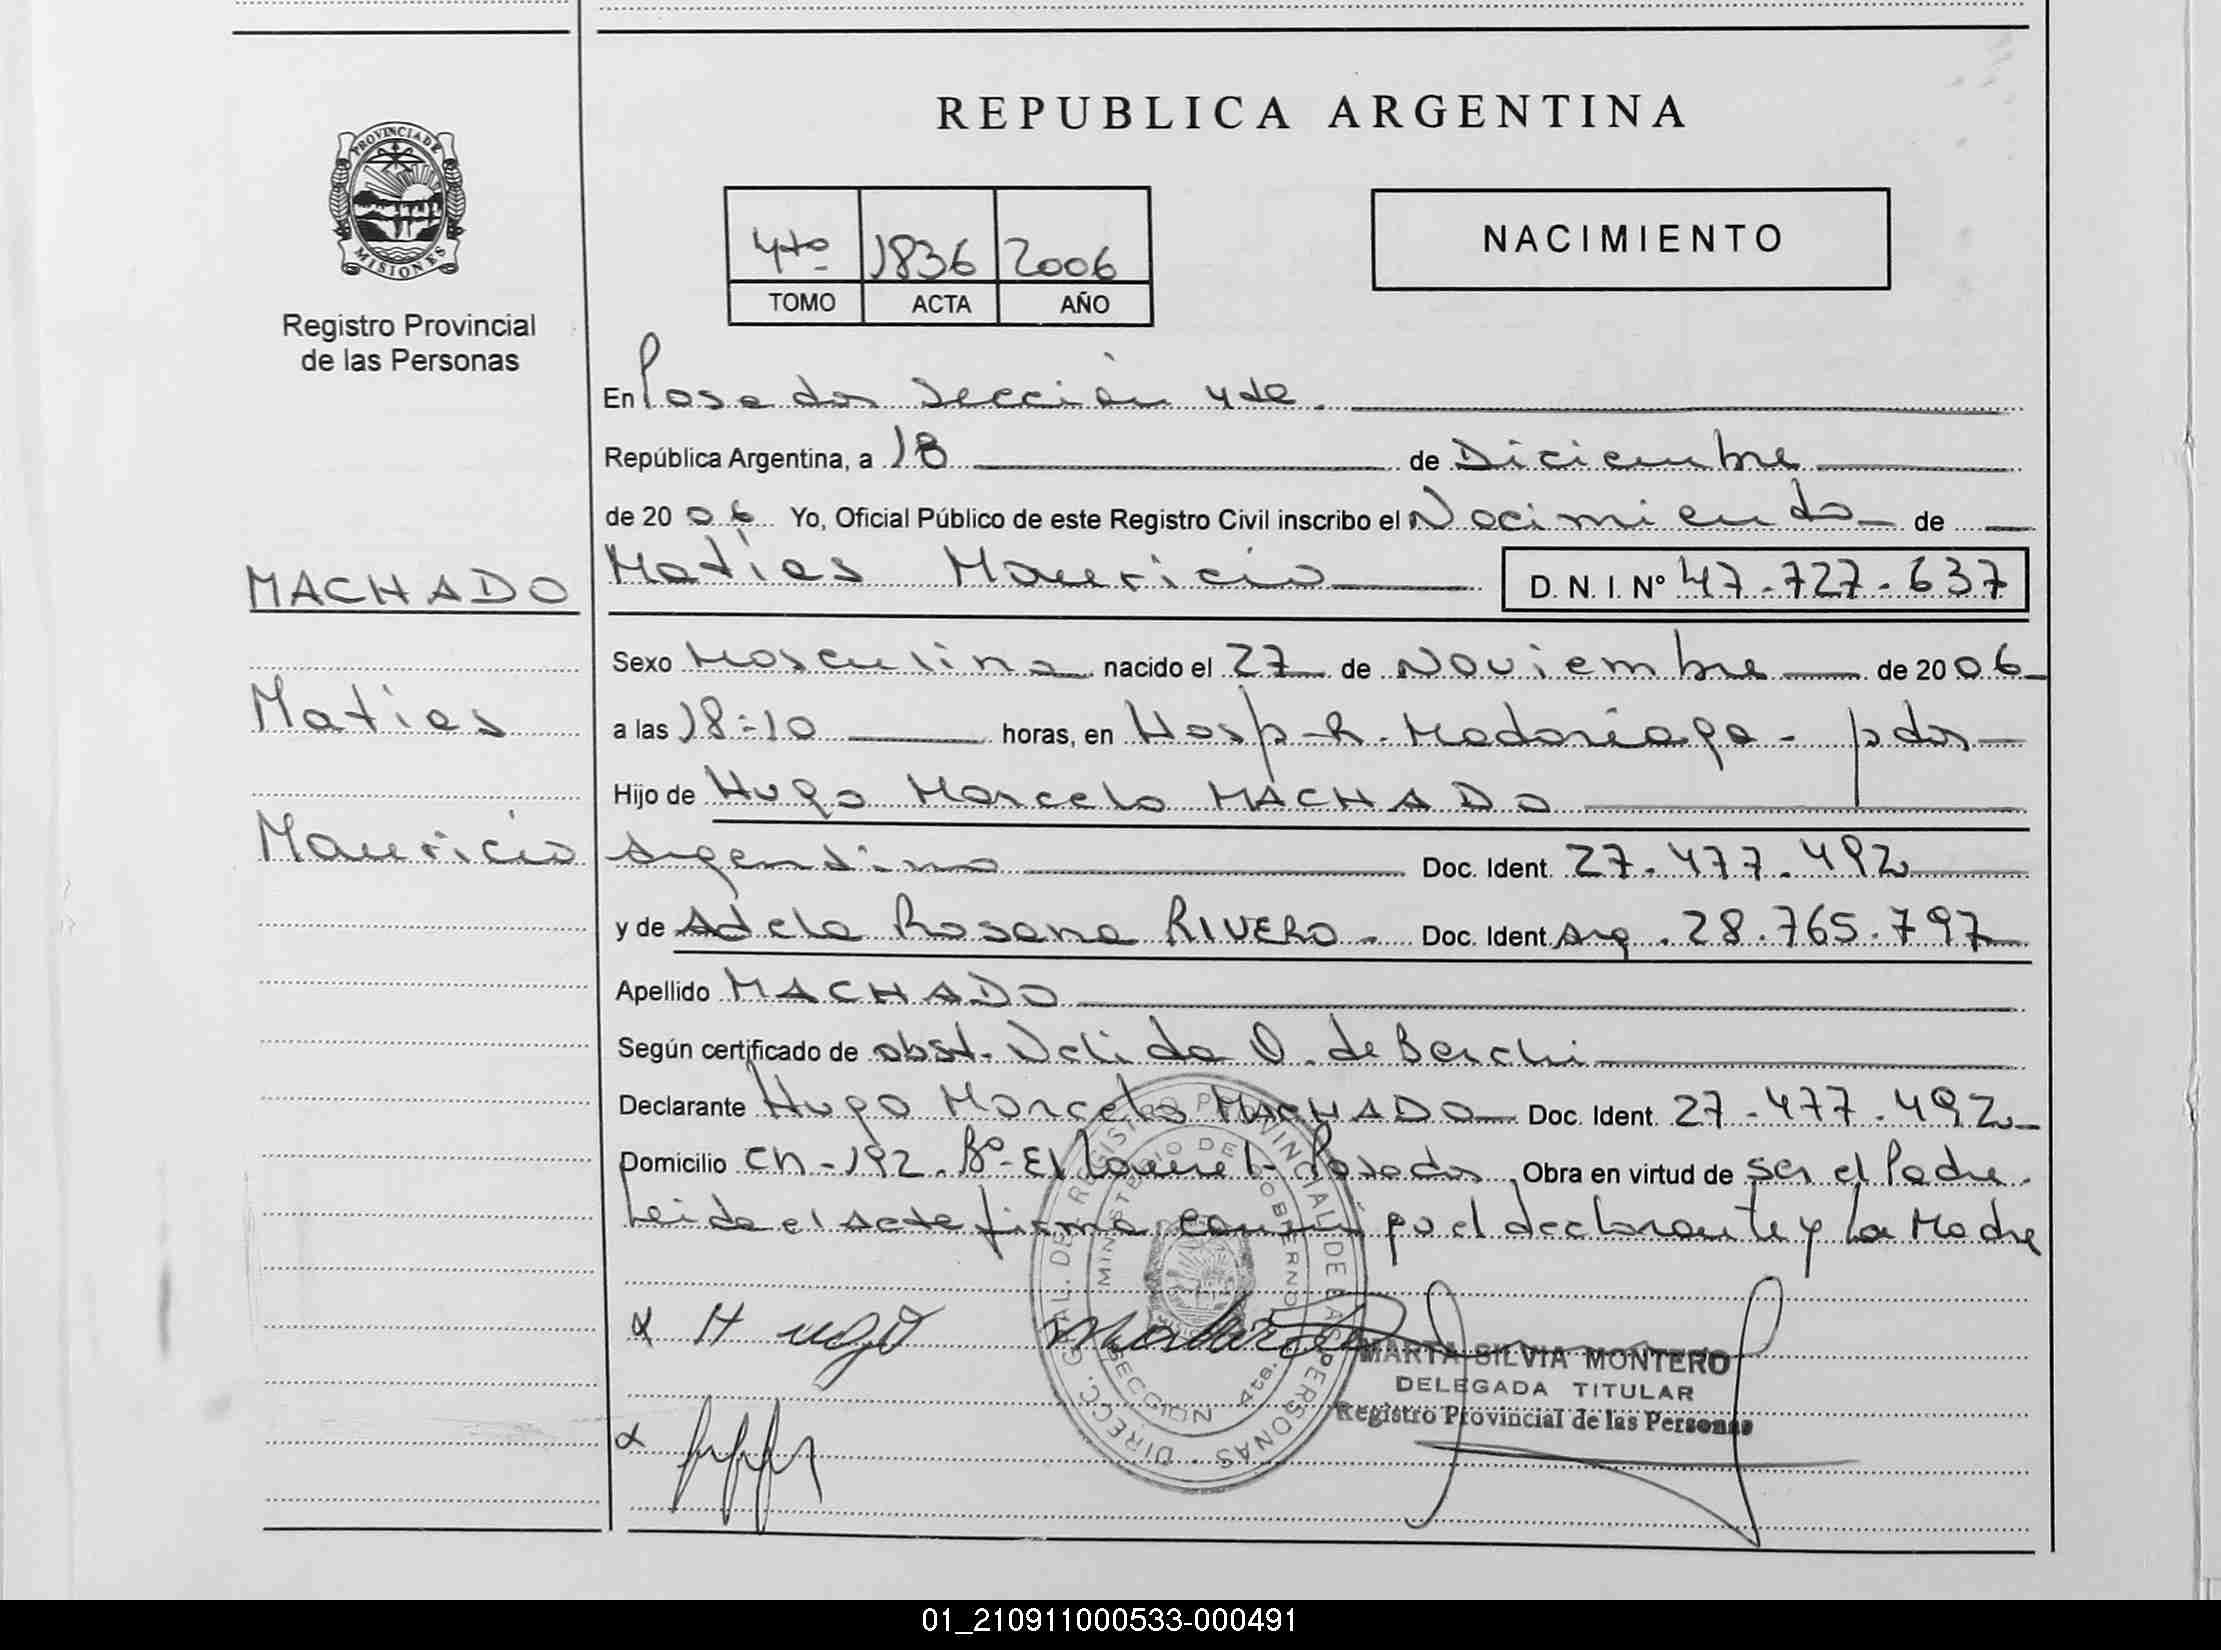 REPUBLICA ARGENTINA
PROVINCIA DE MISIONES
Registro Provincial
de las Personas
4to 1836 2006
TOMO ACTA AÑO
NACIMIENTO
En Posadas Sección 4ta.
República Argentina, a 18 de Diciembre
de 2006 Yo, Oficial Público de este Registro Civil inscribo el Nacimiento de
MACHADO
Matías Mauricio D. N. I. Nº 47.727.637
Sexo Masculino nacido el 27 de Noviembre de 2006
Matías
a las 18:10 horas, en Hosp. R. Madariaga - pdas
Hijo de Hugo Marcelo MACHADO
Mauricio
Argentino Doc. Ident. 27.477.492
y de Adela Rosana RIVERO. Doc. Ident. Arg. 28.765.797
Apellido MACHADO
Según certificado de obst. Nélida O. de Berchi
Declarante Hugo Marcelo MACHADO Doc. Ident. 27.477.492
Domicilio CH-192. Bº El Laurel - Posadas Obra en virtud de ser el Padre.
Leida el acta firma conmigo el declarante y la Madre
DIRECC. GRAL. DE REGISTRO PROVINCIAL DE LAS PERSONAS
MINISTERIO DE GOBIERNO
SECCION 4ta.
Hugo Machado
MARTA SILVIA MONTERO
DELEGADA TITULAR
Registro Provincial de las Personas
01_210911000533-000491